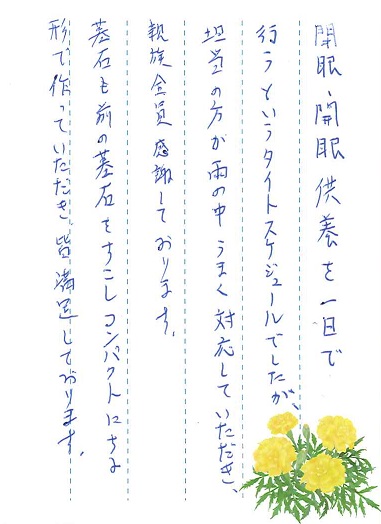 閉眼・開眼供養を一日で
行うというタイトスケジュールでしたが、
担当の方が雨の中うまく対応していただき、
親族全員感謝しております。
墓石も前の墓石をすこしコンパクトにする
形で作っていただき、皆満足しております。